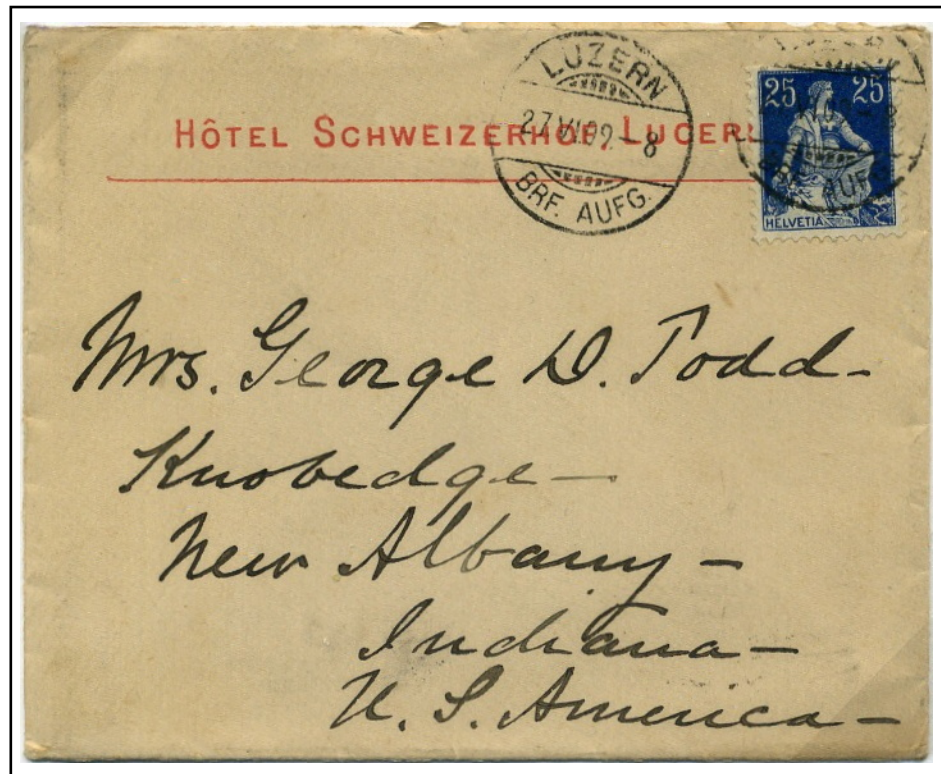 HÔTEL SCHWEIZERHOF, LUCER
LUZERN
27.VI.09-8
BRF. AUFG.
25 25
AUFG.
HELVETIA
Mrs. George D. Todd-
Knobedge-
New Albany-
Indiana-
U. S. America-